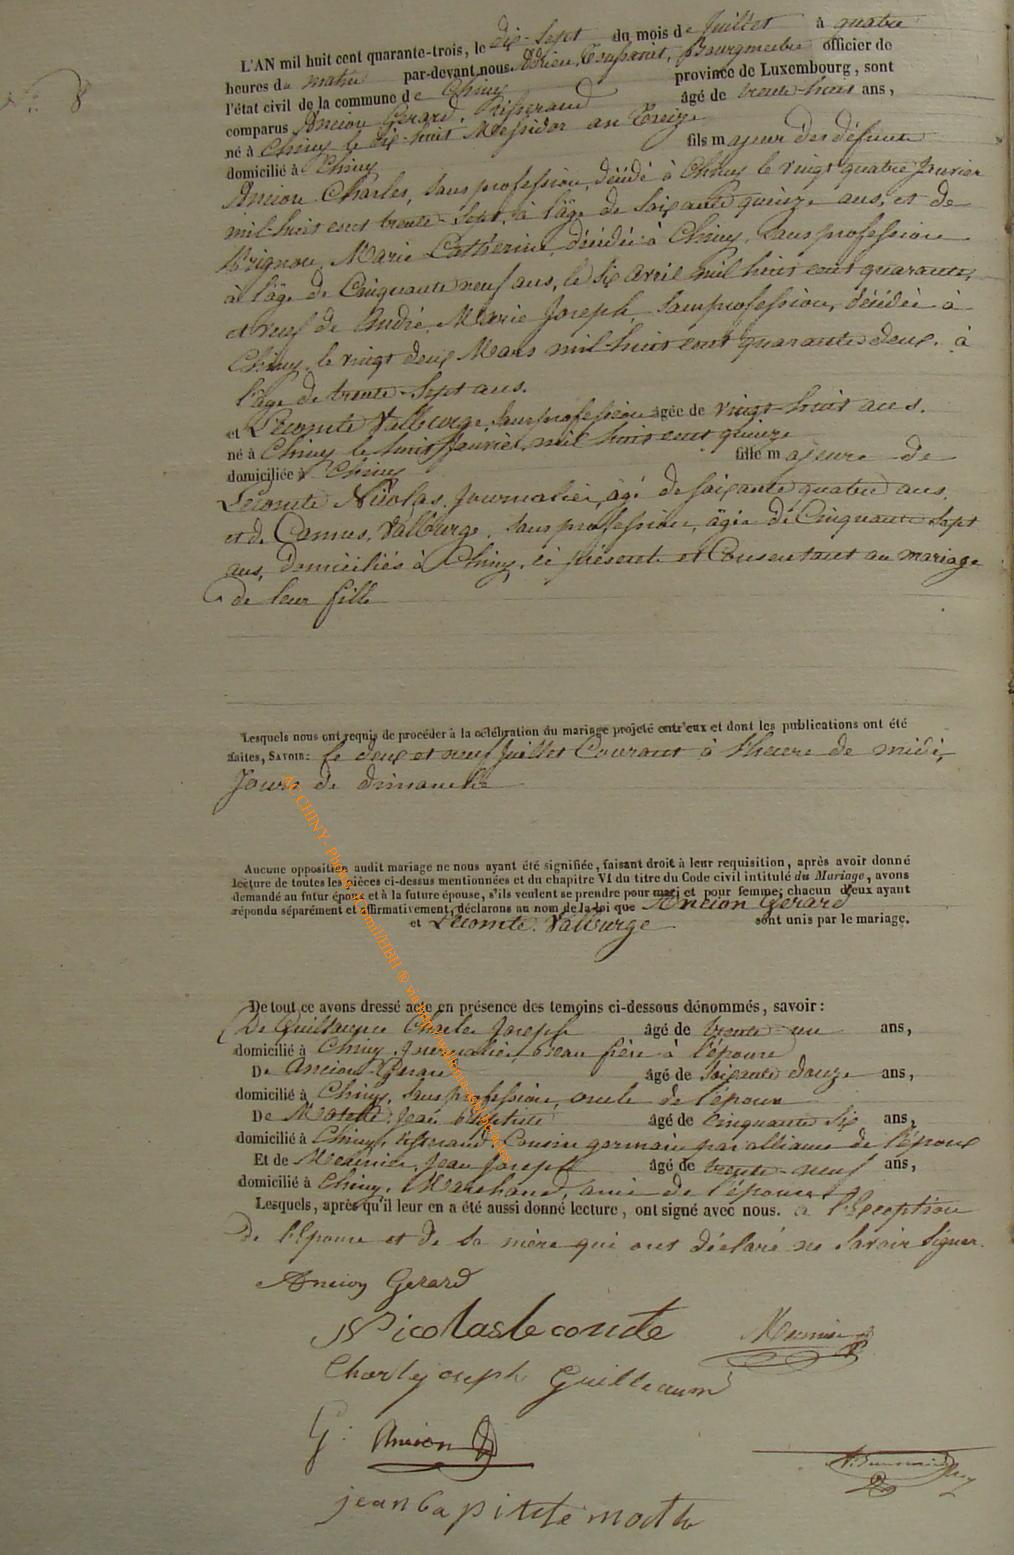 N.° 8
L'AN mil huit cent quarante-trois, le dix-sept du mois de Juillet à quatre
heures du matin par-devant nous Adrien, Bourgmestre officier de
l'état civil de la commune de Chiny province de Luxembourg, sont
comparus Ancion Gerard, Tisserand âgé de trente-huit ans,
né à Chiny le dix-huit Messidor an Treize
domicilié à Chiny fils majeur des défunts
Ancion Charles, sans profession, décédé à Chiny le vingt quatre Janvier
mil-huit cent trente-sept, à l'âge de soixante quinze ans, et de
Marie Catherine, décédée à Chiny, sans profession
à l'âge de Cinquante neuf ans, le six avril mil huit cent quarante,
et veuf de André, Marie Joseph, sans profession, décédée à
Chiny, le vingt deux Mars mil-huit cent quarante deux, à
l'âge de trente-sept ans.
et Lecomte Valburge, sans profession âgée de vingt-huit ans.
né à Chiny le huit Janvier, mil huit cent quinze
domiciliée à Chiny fille majeure de
Lecomte Nicolas, Journalier, âgé de soixante quatre ans,
et de Camus, Valburge, sans profession, âgée de Cinquante sept
ans, domiciliés à Chiny, ci présents et Consentant au mariage
de leur fille
Lesquels nous ont requis de procéder à la célébration du mariage projeté entr'eux et dont les publications ont été
faites, SAVOIR: le deux et neuf Juillet Courant à l'heure de midi,
Jours de dimanche
Aucune opposition audit mariage ne nous ayant été signifiée, faisant droit à leur requisition, après avoir donné
lecture de toutes les pièces ci-dessus mentionnées et du chapitre VI du titre du Code civil intitulé du Mariage, avons
demandé au futur époux et à la future épouse, s'ils veulent se prendre pour mari et pour femme; chacun d'eux ayant
répondu séparément et affirmativement, déclarons au nom de la loi que Ancion Gerard
et Lecomte Valburge sont unis par le mariage.
De tout ce avons dressé acte en présence des temoins ci-dessous dénommés, savoir:
De Guillaume Charles Joseph âgé de trente-un ans,
domicilié à Chiny, Journalier, beau frère à l'épouse
De Ancion Gerard âgé de soixante douze ans,
domicilié à Chiny, sans profession, oncle de l'époux
De Mathe, Jean Baptiste âgé de Cinquante six ans,
domicilié à Chiny, tisserand, Cousin germain par alliance de l'époux
Et de Meunier, Jean Joseph âgé de trente-neuf ans,
domicilié à Chiny, Marchand, ami de l'époux
Lesquels, après qu'il leur en a été aussi donné lecture, ont signé avec nous. à l'Exception
De l'Epouse et de sa mère qui ont déclaré ne savoir signer.
Ancion Gerard
Nicolas lecomte Meunier
Charle joseph Guilleaume
G: Ancion
jean bapitste math